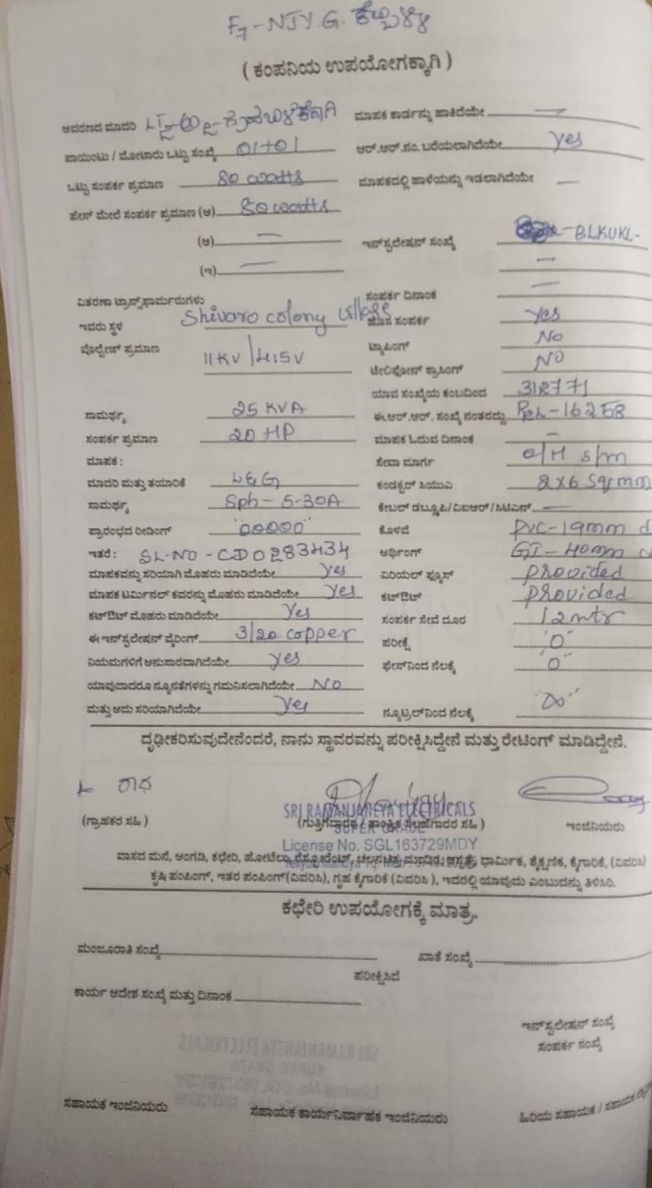 F7-NJY.G. ಕೆಬ್ಬಳ್ಳಿ
( ಕಂಪನಿಯ ಉಪಯೋಗಕ್ಕಾಗಿ )
ಆವರಣದ ಮಾದರಿ ಮಾಪಕ ಕಾರ್ಡನ್ನು ಹಾಕಿದೆಯೇ —
ಪಾಯಿಂಟು / ಮೋಟಾರು ಒಟ್ಟು ಸಂಖ್ಯೆ 01+01 ಆರ್.ಆರ್.ನಂ. ಬರೆಯಲಾಗಿದೆಯೇ yes
ಒಟ್ಟು ಸಂಪರ್ಕ ಪ್ರಮಾಣ 80 watts ಮಾಪಕದಲ್ಲಿ ಹಾಳೆಯನ್ನು ಇಡಲಾಗಿದೆಯೇ —
ಫೇಸ್ ಮೇಲೆ ಸಂಪರ್ಕ ಪ್ರಮಾಣ (ಅ) 80 watts
(ಆ) — ಇನ್‌ಸ್ಟಲೇಷನ್ ಸಂಖ್ಯೆ -BLKUKL-
(ಇ) — —
ವಿತರಣಾ ಟ್ರಾನ್ಸ್‌ಫಾರ್ಮರುಗಳು ಸಂಪರ್ಕ ದಿನಾಂಕ —
ಇವರು ಸ್ಥಳ Shivara colony village ಹೊಸ ಸಂಪರ್ಕ yes
ವೋಲ್ಟೇಜ್ ಪ್ರಮಾಣ 11KV/415V ಟ್ಯಾಪಿಂಗ್ No
ಟೆಲಿಫೋನ್ ಕ್ರಾಸಿಂಗ್ NO
ಯಾವ ಸಂಖ್ಯೆಯ ಕಂಬದಿಂದ 312771
ಸಾಮರ್ಥ್ಯ 25 KVA ಈ.ಆರ್.ಆರ್. ಸಂಖ್ಯೆ ನಂತರದ್ದು -16258
ಸಂಪರ್ಕ ಪ್ರಮಾಣ 20 HP ಮಾಪಕ ಓದುವ ದಿನಾಂಕ —
ಮಾಪಕ : ಸೇವಾ ಮಾರ್ಗ O/H s/m
ಮಾದರಿ ಮತ್ತು ತಯಾರಿಕೆ L&G ಕಂಡಕ್ಟರ್ ಸಿಯುವಿ 2x6 Sqrmm
ಸಾಮರ್ಥ್ಯ Sph-5-30A ಕೇಬಲ್ ಡಬ್ಲೂಪಿ/ವಿಐಆರ್/ಸಿಟಿಎಸ್ —
ಪ್ರಾರಂಭದ ರೀಡಿಂಗ್ "00000" ಕೊಳವೆ PVC-19mm d
ಇತರೆ : SL-NO-CD0283434 ಅರ್ಥಿಂಗ್ GI-40mm
ಮಾಪಕವನ್ನು ಸರಿಯಾಗಿ ಮೊಹರು ಮಾಡಿದೆಯೇ yes ಏರಿಯಲ್ ಫ್ಯೂಸ್ provided
ಮಾಪಕ ಟರ್ಮಿನಲ್ ಕವರನ್ನು ಮೊಹರು ಮಾಡಿದೆಯೇ yes ಕಟ್‌ಔಟ್ provided
ಕಟ್‌ಔಟ್ ಮೊಹರು ಮಾಡಿದೆಯೇ yes ಸಂಪರ್ಕ ಸೇವೆ ದೂರ 12mtr
ಈ ಇನ್‌ಸ್ಟಲೇಷನ್ ವೈರಿಂಗ್ 3/20 copper ಪರೀಕ್ಷೆ "0"
ನಿಯಮಗಳಿಗೆ ಅನುಸಾರವಾಗಿದೆಯೇ yes ಫೇಸ್‌ನಿಂದ ನೆಲಕ್ಕೆ "0"
ಯಾವುದಾದರೂ ನ್ಯೂನತೆಗಳನ್ನು ಗಮನಿಸಲಾಗಿದೆಯೇ NO
ಮತ್ತು ಅದು ಸರಿಯಾಗಿದೆಯೇ yes ನ್ಯೂಟ್ರಲ್‌ನಿಂದ ನೆಲಕ್ಕೆ
ದೃಢೀಕರಿಸುವುದೇನೆಂದರೆ, ನಾನು ಸ್ಥಾವರವನ್ನು ಪರೀಕ್ಷಿಸಿದ್ದೇನೆ ಮತ್ತು ರೇಟಿಂಗ್ ಮಾಡಿದ್ದೇನೆ.
SRI RAMANJANEYA ELECTRICALS
(ಗ್ರಾಹಕರ ಸಹಿ ) (ಗುತ್ತಿಗೆದಾರರ / ತಾಂತ್ರಿಕ ಸಲಹೆಗಾರರ ಸಹಿ ) ಇಂಜಿನಿಯರು
SUPER GRADE
License No. SGL163729MDY
ವಾಸದ ಮನೆ, ಅಂಗಡಿ, ಕಛೇರಿ, ಹೋಟೆಲು, ರೆಸ್ಟೋರೆಂಟ್, ಚಲನಚಿತ್ರ ಮಂದಿರ, ಆಸ್ಪತ್ರೆ, ಧಾರ್ಮಿಕ, ಶೈಕ್ಷಣಿಕ, ಕೈಗಾರಿಕೆ, (ವಿವರಿಸಿ)
ಕೃಷಿ ಪಂಪಿಂಗ್, ಇತರ ಪಂಪಿಂಗ್(ವಿವರಿಸಿ), ಗೃಹ ಕೈಗಾರಿಕೆ (ವಿವರಿಸಿ ), ಇದರಲ್ಲಿ ಯಾವುದು ಎಂಬುದನ್ನು ತಿಳಿಸಿರಿ.
ಕಛೇರಿ ಉಪಯೋಗಕ್ಕೆ ಮಾತ್ರ.
ಮಂಜೂರಾತಿ ಸಂಖ್ಯೆ ಖಾತೆ ಸಂಖ್ಯೆ
ಪರೀಕ್ಷಿಸಿದೆ
ಕಾರ್ಯ ಆದೇಶ ಸಂಖ್ಯೆ ಮತ್ತು ದಿನಾಂಕ
ಇನ್‌ಸ್ಟಲೇಷನ್ ಸಂಖ್ಯೆ
ಸಂಪರ್ಕ ಸಂಖ್ಯೆ
ಸಹಾಯಕ ಇಂಜಿನಿಯರು ಸಹಾಯಕ ಕಾರ್ಯನಿರ್ವಾಹಕ ಇಂಜಿನಿಯರು ಹಿರಿಯ ಸಹಾಯಕ / ಸಹಾಯಕ